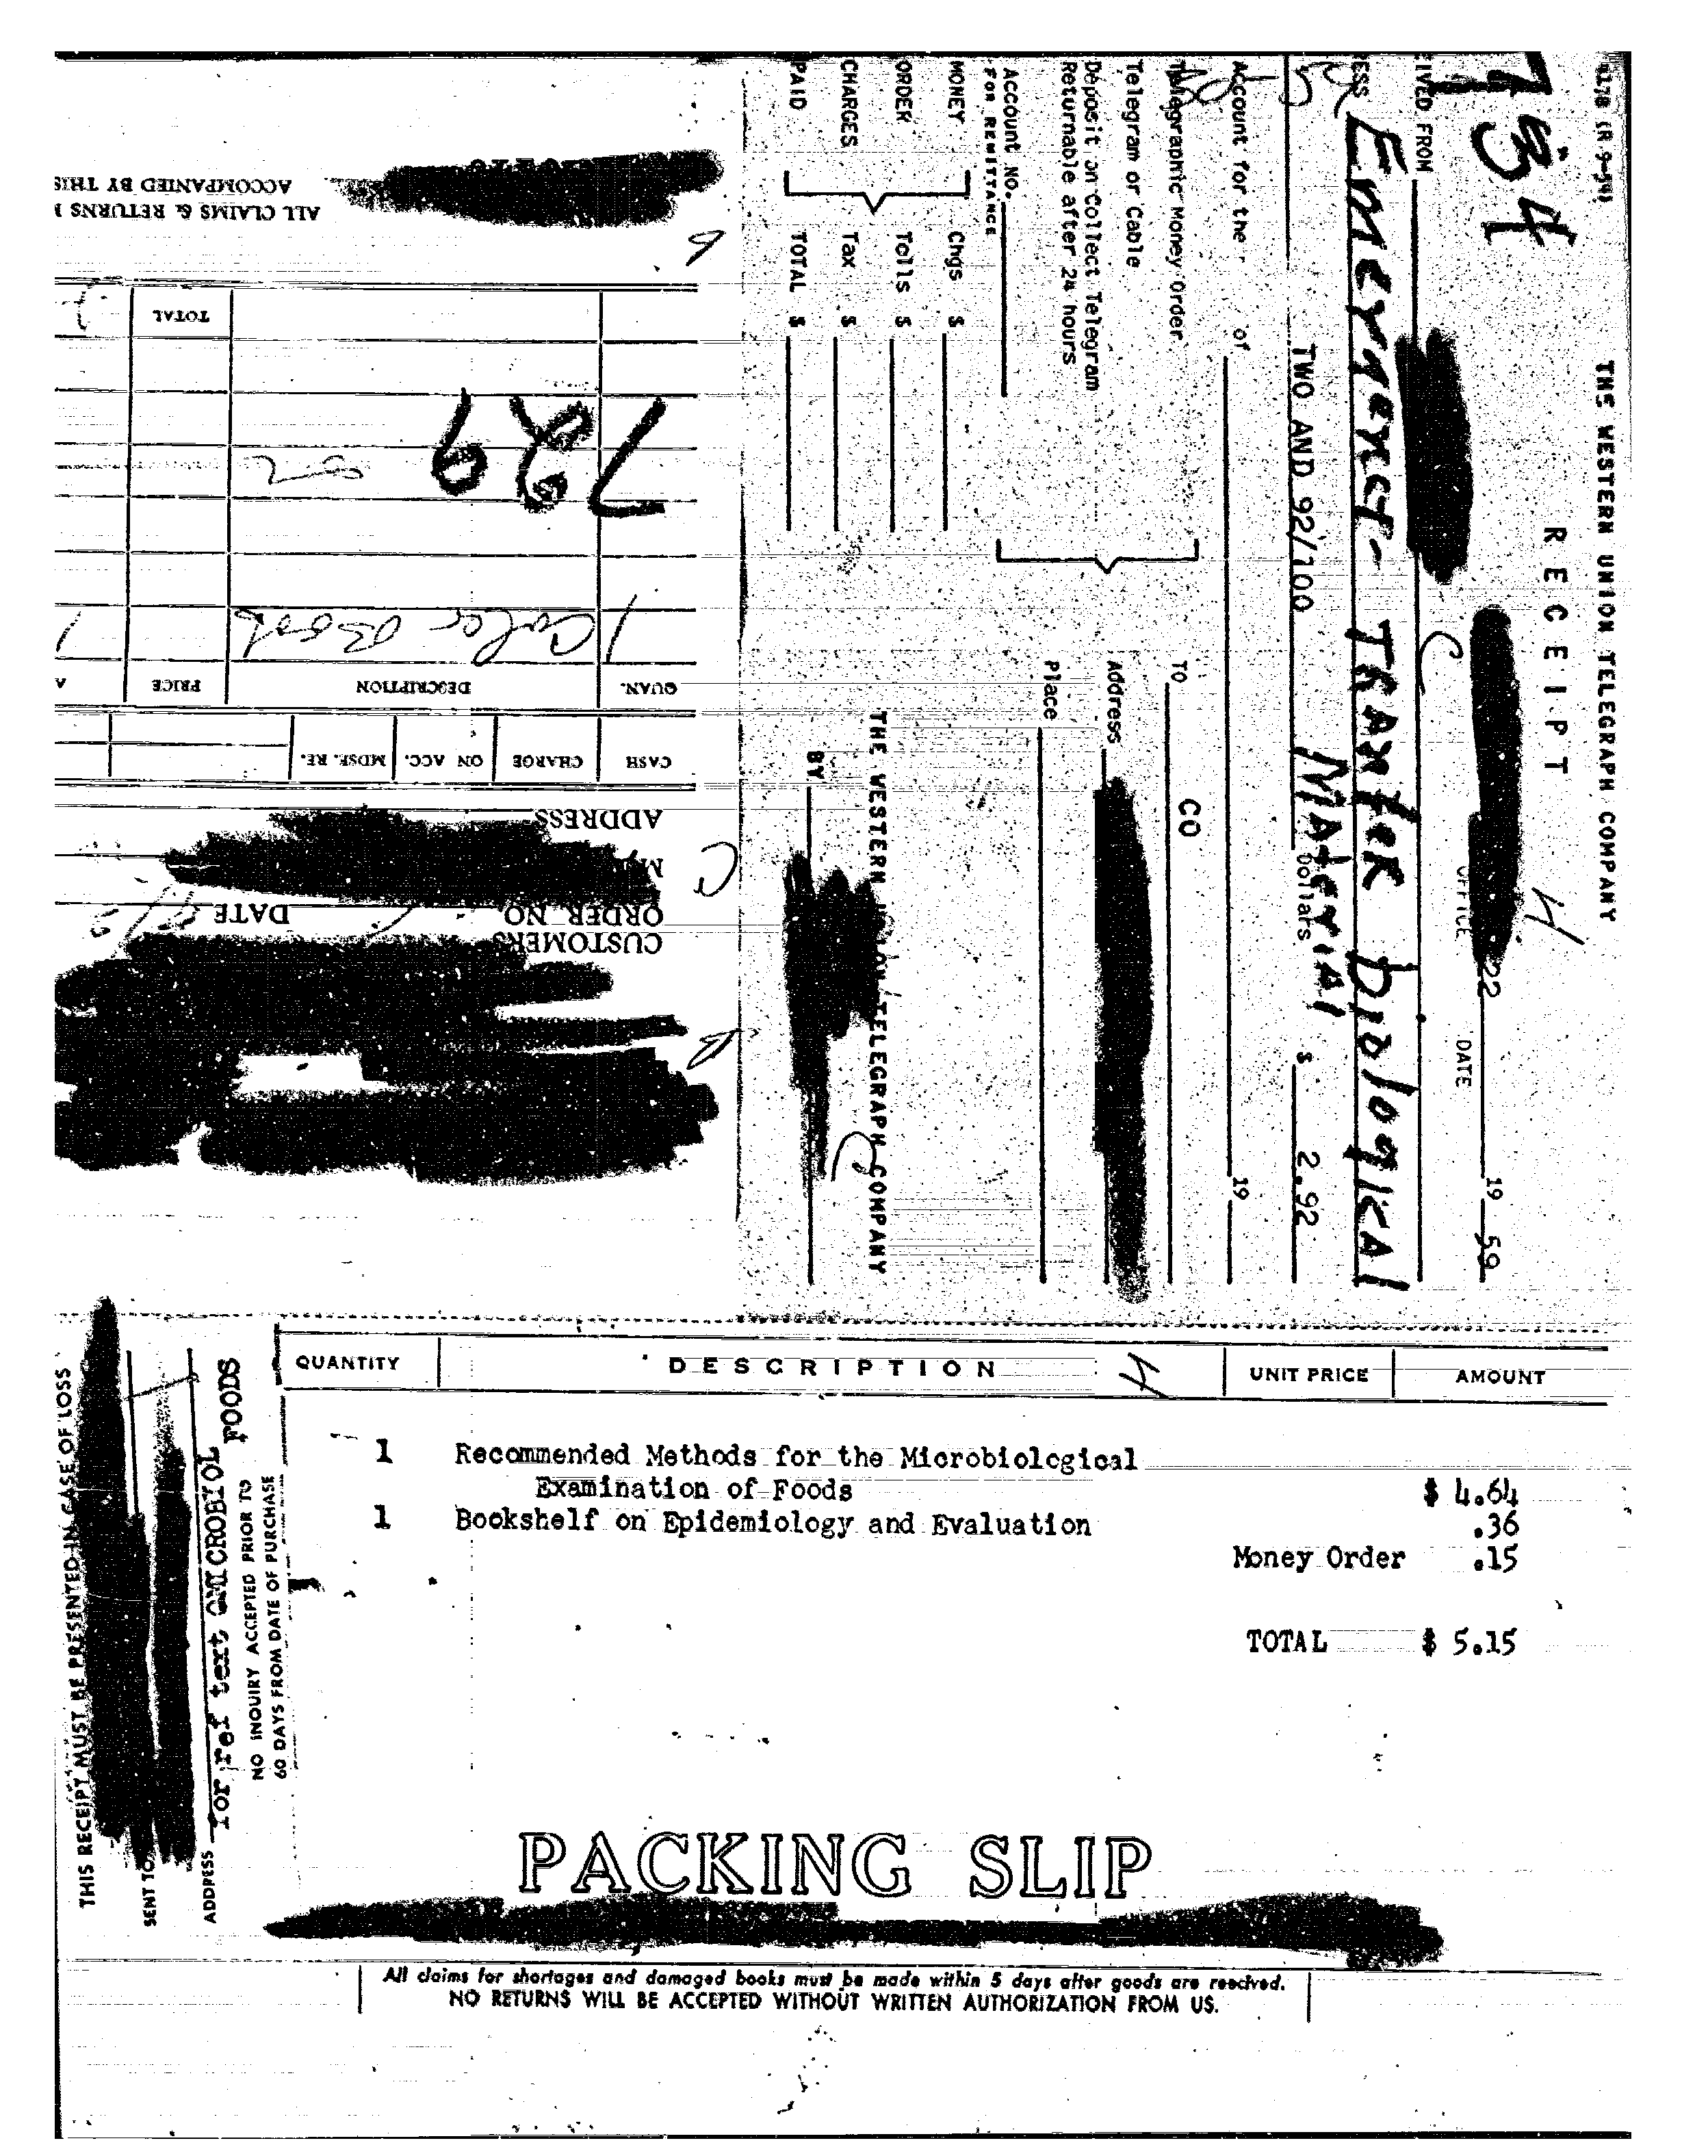 6178 (R 9-54)
THE WESTERN UNION TELEGRAPH COMPANY
RECEIPT
734
OFFICE
22
DATE
19 59
EIVED FROM
ESS
Emergency- TRANsfeR Biological
MAteriAl
TWO AND 92/100
Dollars
$ 2.92
Account for the
of
19
Telegraphic Money Order
Telegram or Cable
Deposit on Collect Telegram
Returnable after 24 hours
Account No.
FOR REMITTANCE
TO
CO
Address
Place
MONEY
ORDER
CHARGES
PAID
Chgs $
Tolls $
Tax $
TOTAL $
THE WESTERN UNION TELEGRAPH COMPANY
BY
CUSTOMERS
ORDER NO.
DATE
ADDRESS
CASH
CHARGE
ON ACC.
MDSE. RE.
QUAN.
DESCRIPTION
PRICE
A
1 Color Book
789
TOTAL
ALL CLAIMS & RETURNS
ACCOMPANIED BY THIS
THIS RECEIPT MUST BE PRESENTED IN CASE OF LOSS
SENT TO
ADDRESS
for ref text QMICROBIOL
FOODS
NO INQUIRY ACCEPTED PRIOR TO
60 DAYS FROM DATE OF PURCHASE
QUANTITY DESCRIPTION UNIT PRICE AMOUNT
1 Recommended Methods for the Microbiological
Examination of Foods $ 4.64
1 Bookshelf on Epidemiology and Evaluation .36
Money Order .15
TOTAL $ 5.15
PACKING SLIP
All claims for shortages and damaged books must be made within 5 days after goods are received.
NO RETURNS WILL BE ACCEPTED WITHOUT WRITTEN AUTHORIZATION FROM US.